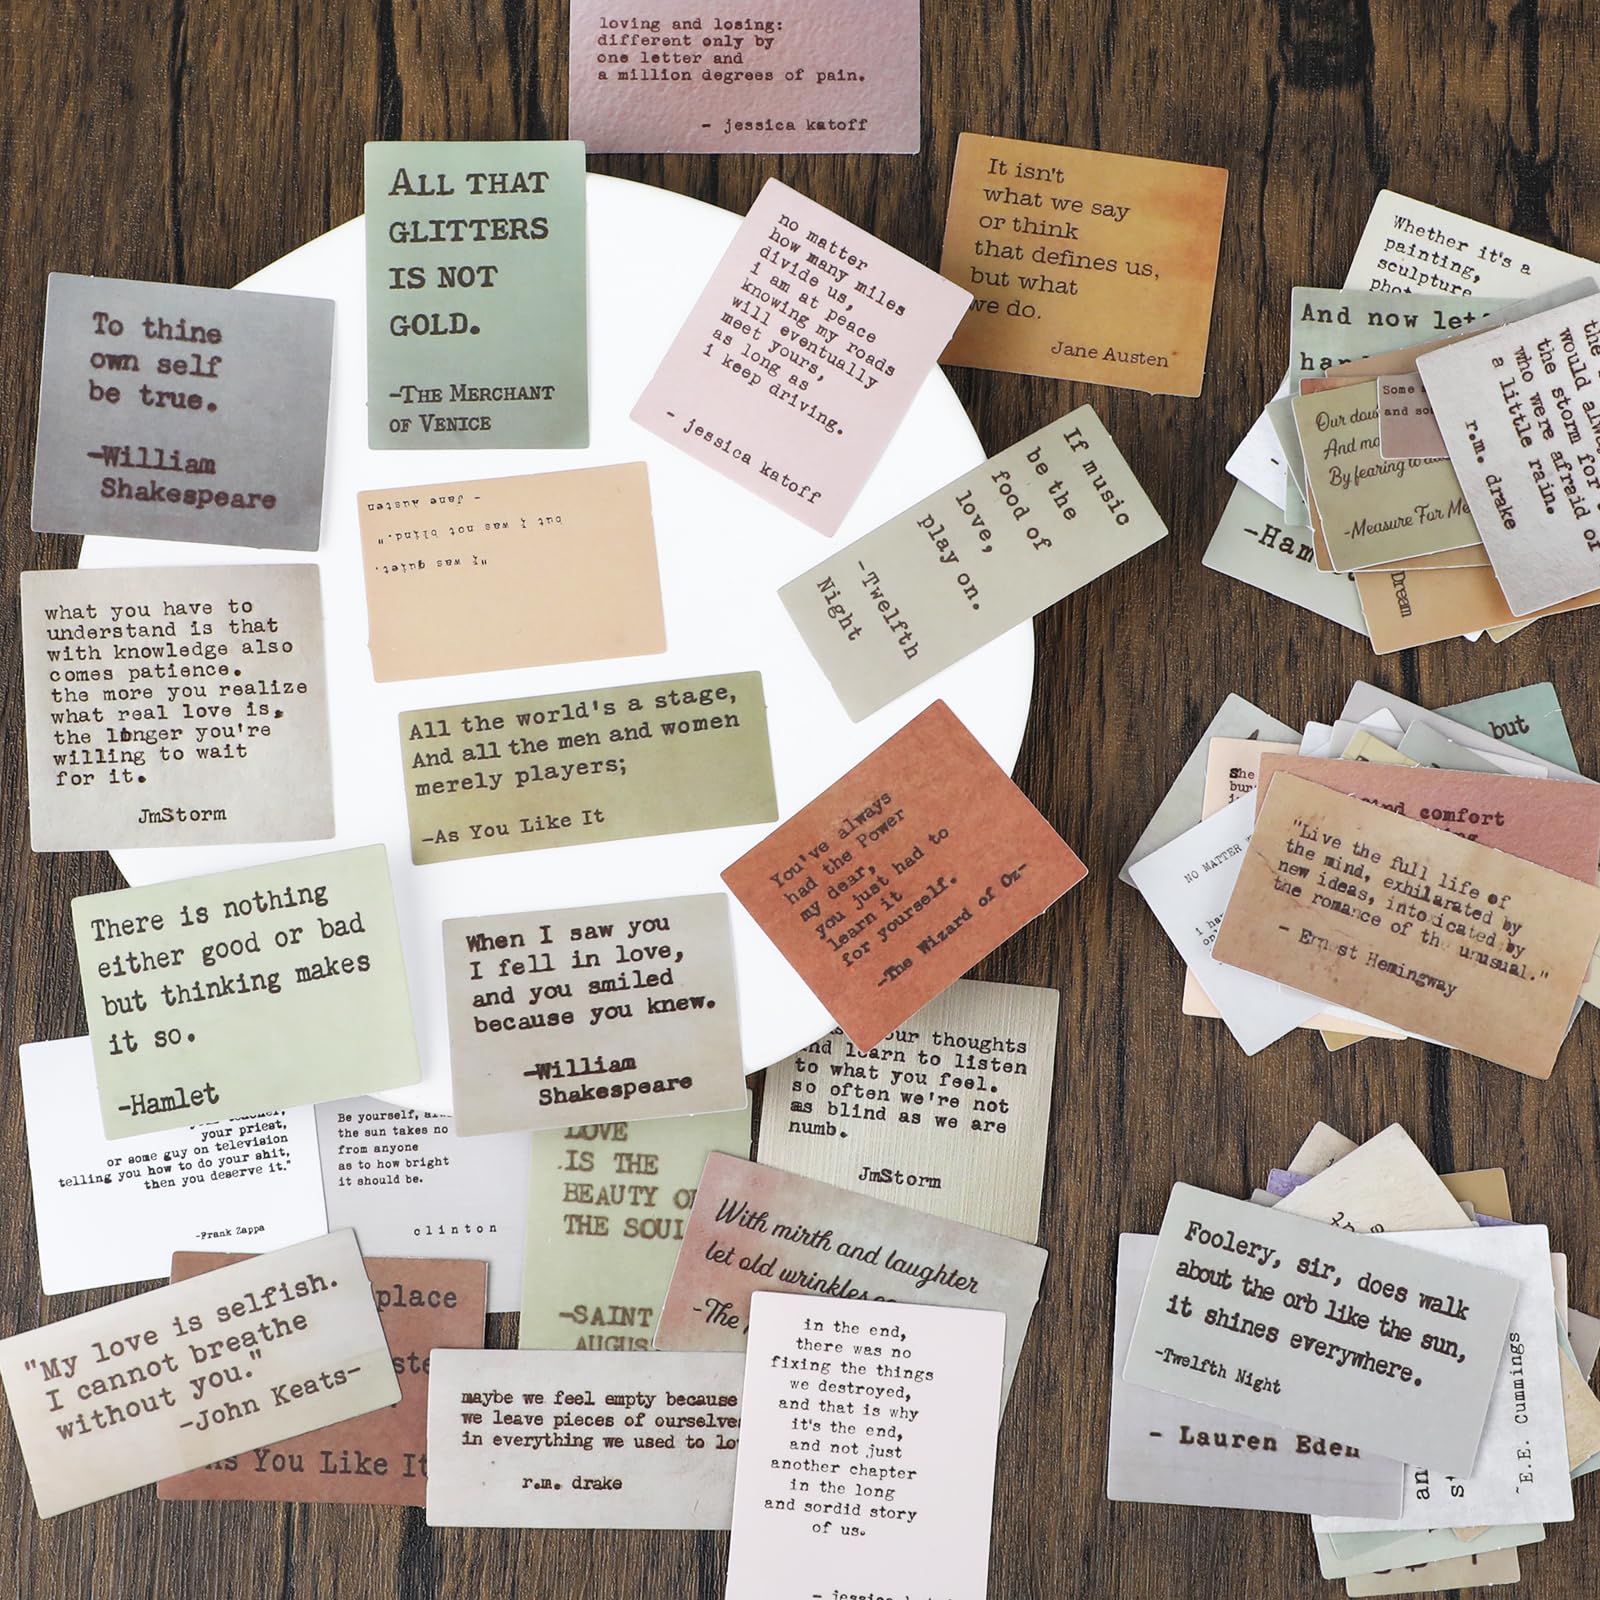 loving and losing:
different only by
one letter and
a million degrees of pain.
- jessica katoff
ALL THAT
GLITTERS
IS NOT
GOLD.
-THE MERCHANT
OF VENICE
no matter
how many miles
divide us,
i am at peace
knowing my roads
will eventually
meet yours,
as long as
i keep driving.
- jessica katoff
It isn't
what we say
or think
that defines us,
but what
we do.
Jane Austen
To thine
own self
be true.
-William
Shakespeare
"i was quiet.
but i was not blind."
- Jane Austen
If music
be the
food of
love,
play on.
-Twelfth
Night
what you have to
understand is that
with knowledge also
comes patience.
the more you realize
what real love is,
the longer you're
willing to wait
for it.
JmStorm
All the world's a stage,
And all the men and women
merely players;
-As You Like It
You've always
had the Power
my dear,
you just had to
learn it
for yourself.
-The Wizard of Oz-
There is nothing
either good or bad
but thinking makes
it so.
-Hamlet
When I saw you
I fell in love,
and you smiled
because you knew.
-William
Shakespeare
your priest,
or some guy on television
telling you how to do your shit,
then you deserve it."
-Frank Zappa
Be yourself,
the sun takes no
from anyone
as to how bright
it should be.
clinton
LOVE
IS THE
BEAUTY
THE SOUL
-SAINT
AUGUS
our thoughts
and learn to listen
to what you feel.
so often we're not
as blind as we are
numb.
JmStorm
With mirth and laughter
let old wrinkles
-The
"My love is selfish.
I cannot breathe
without you."
-John Keats-
place
As You Like It
maybe we feel empty because
we leave pieces of ourselves
in everything we used to lo
r.m. drake
in the end,
there was no
fixing the things
we destroyed,
and that is why
it's the end,
and not just
another chapter
in the long
and sordid story
of us.
- jessica
Whether it's a
painting,
sculpture
And now let
Some
and
Our
And
By fearing
-Measure For Me
-Ham
Dream
the
would always
the storm for
who were afraid of
a little rain.
r.m. drake
but
She
comfort
NO MATTER
i ha
"Live the full life of
the mind, exhilarated by
new ideas, intoxicated by
the romance of the unusual."
- Ernest Hemingway
Foolery, sir, does walk
about the orb like the sun,
it shines everywhere.
-Twelfth Night
- Lauren Eden
~E.E. Cummings